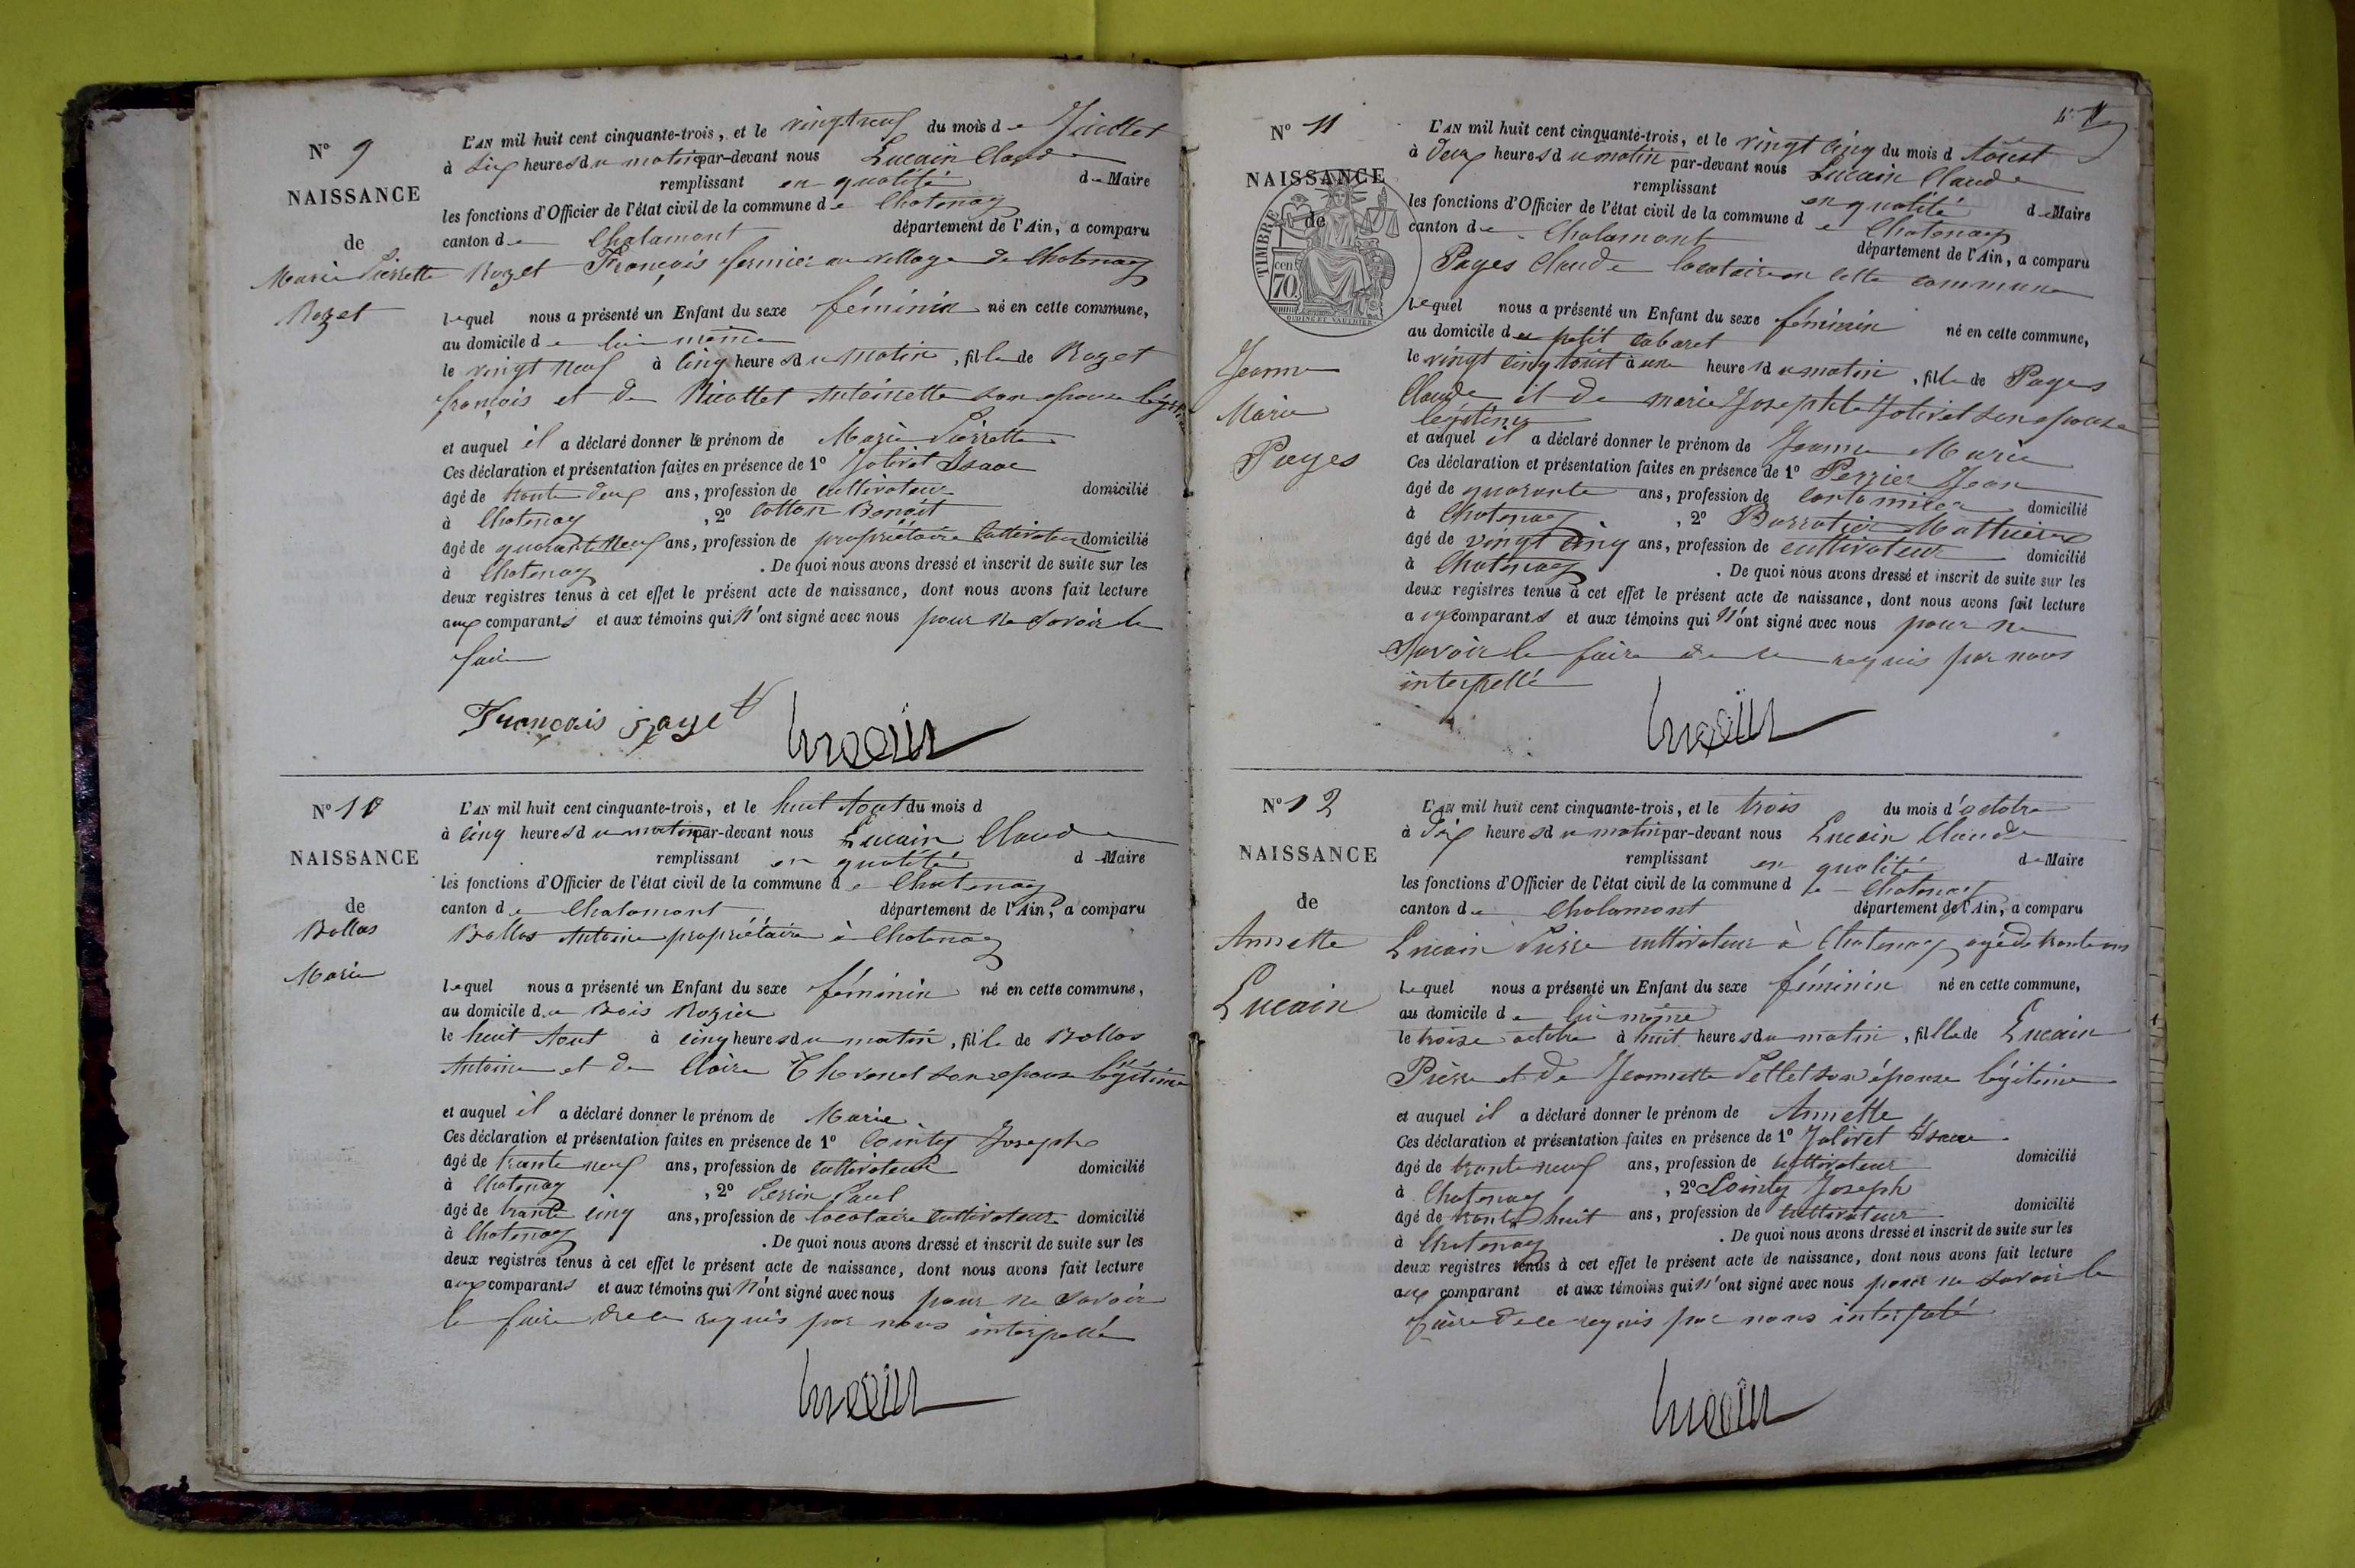 N° 9
NAISSANCE
de
Marie Pierrette
Rozet
L'AN mil huit cent cinquante-trois, et le vingt neuf du mois de Juillet
à Six heures du matin par-devant nous Lucain Claude
remplissant en qualité de Maire
les fonctions d'Officier de l'état civil de la commune de Chatenay
canton de Chalamont département de l'Ain, a comparu
Rozet François fermier au village de Chatenay
lequel nous a présenté un Enfant du sexe féminin né en cette commune,
au domicile de lui même
le vingt neuf à Cinq heures du matin, fille de Rozet
françois et de Nicollet Antoinette son épouse
et auquel il a déclaré donner le prénom de Marie Pierrette
Ces déclaration et présentation faites en présence de 1° Jolivet Isaac
âgé de trente deux ans, profession de cultivateur domicilié
à Chatenay, 2° Cotton Benoit
âgé de quarante neuf ans, profession de propriétaire Cultivateur domicilié
à Chatenay. De quoi nous avons dressé et inscrit de suite sur les
deux registres tenus à cet effet le présent acte de naissance, dont nous avons fait lecture
aux comparants et aux témoins qui N'ont signé avec nous pour ne Savoir le
faire
François
Lucain
N° 10
NAISSANCE
de
Bollas
Marie
L'AN mil huit cent cinquante-trois, et le huit Aout du mois d
à Cinq heures du matin par-devant nous Lucain Claude
remplissant en qualité d Maire
les fonctions d'Officier de l'état civil de la commune de Chatenay
canton de Chalamont département de l'Ain, a comparu
Bollas Antoine propriétaire à Chatenay
lequel nous a présenté un Enfant du sexe féminin né en cette commune,
au domicile du Bois Rozier
le huit Aout à cinq heures du matin, fille de Bollas
Antoine et de Claire Thevenet son épouse légitime
et auquel il a déclaré donner le prénom de Marie
Ces déclaration et présentation faites en présence de 1° Cointy Joseph
âgé de trente neuf ans, profession de cultivateur domicilié
à Chatenay, 2° Perrin Paul
âgé de trente cinq ans, profession de locataire Cultivateur domicilié
à Chatenay. De quoi nous avons dressé et inscrit de suite sur les
deux registres tenus à cet effet le présent acte de naissance, dont nous avons fait lecture
aux comparants et aux témoins qui N'ont signé avec nous pour ne Savoir
le faire de ce requis par nous interpellé
Lucain
N° 11
NAISSANCE
de
TIMBRE
cent
70
Jeanne
Marie
Pages
L'AN mil huit cent cinquante-trois, et le vingt Cinq du mois d Aoust
à deux heures du matin par-devant nous Lucain Claude
remplissant en qualité de Maire
les fonctions d'Officier de l'état civil de la commune de Chatenay
canton de Chalamont département de l'Ain, a comparu
Pages Claude locataire en cette commune
lequel nous a présenté un Enfant du sexe féminin né en cette commune,
au domicile du petit Cabaret
le vingt cinq Aout à une heures du matin, fille de Pages
Claude et de marie Josephte Jolivet son épouse
légitime
et auquel il a déclaré donner le prénom de Jeanne Marie
Ces déclaration et présentation faites en présence de 1° Perrier Jean
âgé de quarante ans, profession de domicilié
à Chatenay, 2° Barratier Matthieu
âgé de vingt Cinq ans, profession de cultivateur domicilié
à Chatenay. De quoi nous avons dressé et inscrit de suite sur les
deux registres tenus à cet effet le présent acte de naissance, dont nous avons fait lecture
aux comparants et aux témoins qui N'ont signé avec nous pour ne
Savoir le faire de ce requis par nous
interpellé
Lucain
N° 12
NAISSANCE
de
Annette
Lucain
L'AN mil huit cent cinquante-trois, et le trois du mois d'octobre
à Dix heures du matin par-devant nous Lucain Claude
remplissant en qualité de Maire
les fonctions d'Officier de l'état civil de la commune de Chatenay
canton de Chalamont département de l'Ain, a comparu
Lucain Pierre cultivateur à Chatenay agé de trente ans
lequel nous a présenté un Enfant du sexe féminin né en cette commune,
au domicile de lui même
le troise octobre à huit heures du matin, fille de Lucain
Pierre et de Jeannette Pellet son épouse légitime
et auquel il a déclaré donner le prénom de Annette
Ces déclaration et présentation faites en présence de 1° Jolivet Isaac
âgé de trente neuf ans, profession de cultivateur domicilié
à Chatenay, 2° Cointy Joseph
âgé de trente huit ans, profession de Cultivateur domicilié
à Chatenay. De quoi nous avons dressé et inscrit de suite sur les
deux registres tenus à cet effet le présent acte de naissance, dont nous avons fait lecture
aux comparant et aux témoins qui N'ont signé avec nous pour ne Savoir le
faire de ce requis par nous interpelé
Lucain